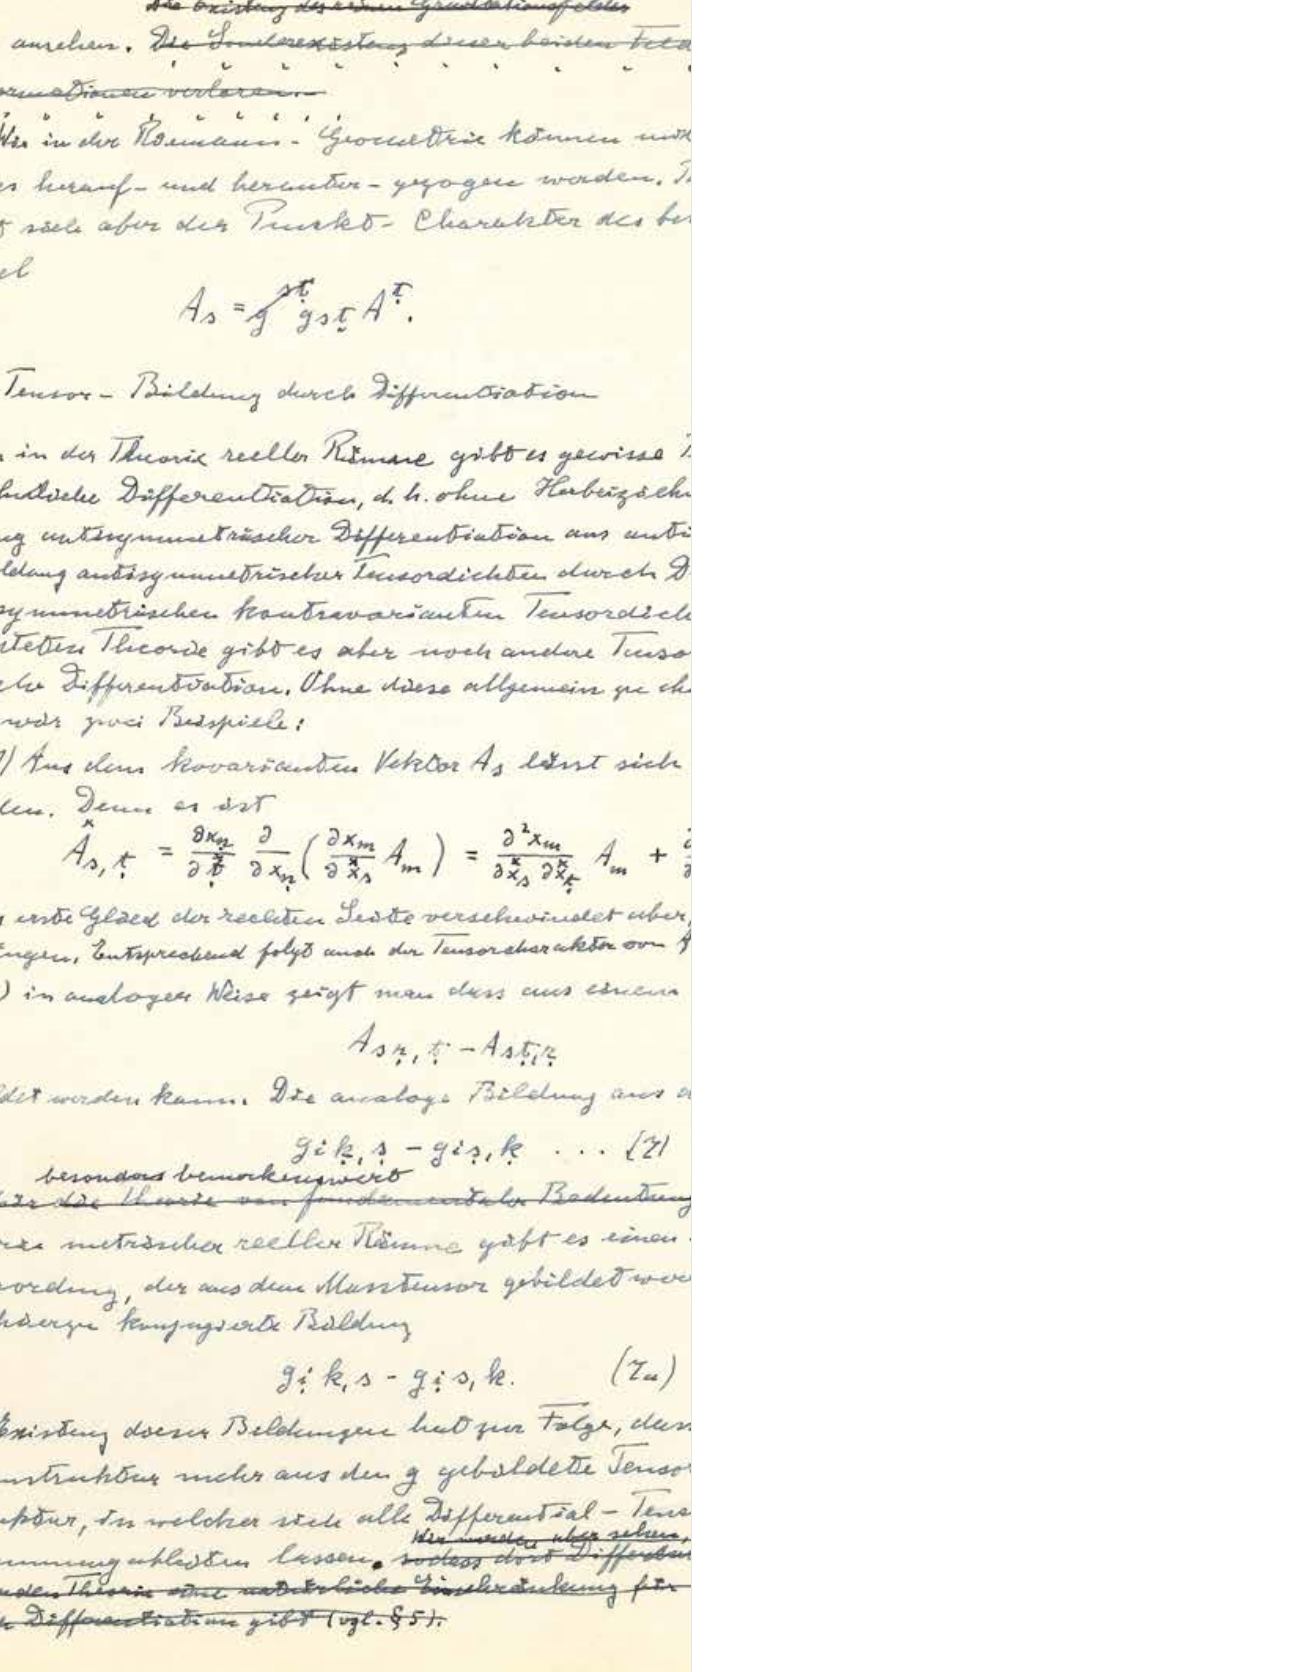 Die Existenz des reinen Gravitationsfeldes
ansehen. Die Sonderexistenz dieser beiden Feld
ormationen verloren.
Wie in der Riemann-Geometrie können mit
es herauf- und herunter-gezogen werden.
sich aber der Punkt-Charakter des be
el
A_s = g^{sṭ} g_{sṭ} A^ṭ.
Tensor-Bildung durch Differentiation
in der Theorie reeller Räume gibt es gewisse T
hnliche Differentiation, d.h. ohne Herbeizieh
ng antisymmetrischer Differentiation aus anti
ldung antisymmetrischer Tensordichten durch D
symmetrischen kontravarianten Tensordich
teten Theorie gibt es aber noch andere Tenso
che Differentiation. Ohne diese allgemein zu cha
wir zwei Beispiele:
1) Aus dem kovarianten Vektor A_s lässt sich
den. Denn es ist
A^*_{s,ṭ} = ∂x_ṇ/∂ṭ^* ∂/∂x_ṇ (∂x_m/∂x^*_s A_m) = ∂²x_m/∂x^*_s ∂x^*_ṭ A_m + ∂
erste Glied der rechten Seite verschwindet aber,
ngen. Entsprechend folgt auch der Tensorcharakter von A
) in analoger Weise zeigt man dass aus einem
A_{sṛ,ṭ} - A_{sṭ,ṛ}
ldet werden kann. Die analoge Bildung aus d
g_{iḳ,ṣ} - g_{iṣ,ḳ} ... (7)
besonders bemerkenswert
für die Theorie von fundamentaler Bedeutung
rie metrischer reeller Räume gibt es einen
ordnung, der aus dem Masstensor gebildet wer
hierzu konjugierte Bildung
g_{ịk,s} - g_{ịs,k}. (7a)
Existenz dieser Bildungen hat zur Folge, dass
nstruktur mehr aus den g gebildete Tenso
ktur, in welcher sich alle Differential-Tens
Wir werden aber sehen,
immung ableiten lassen. sodass dort Differen
nden Theorie eine natürliche Einschränkung für
Differentiation gibt (vgl. §5).